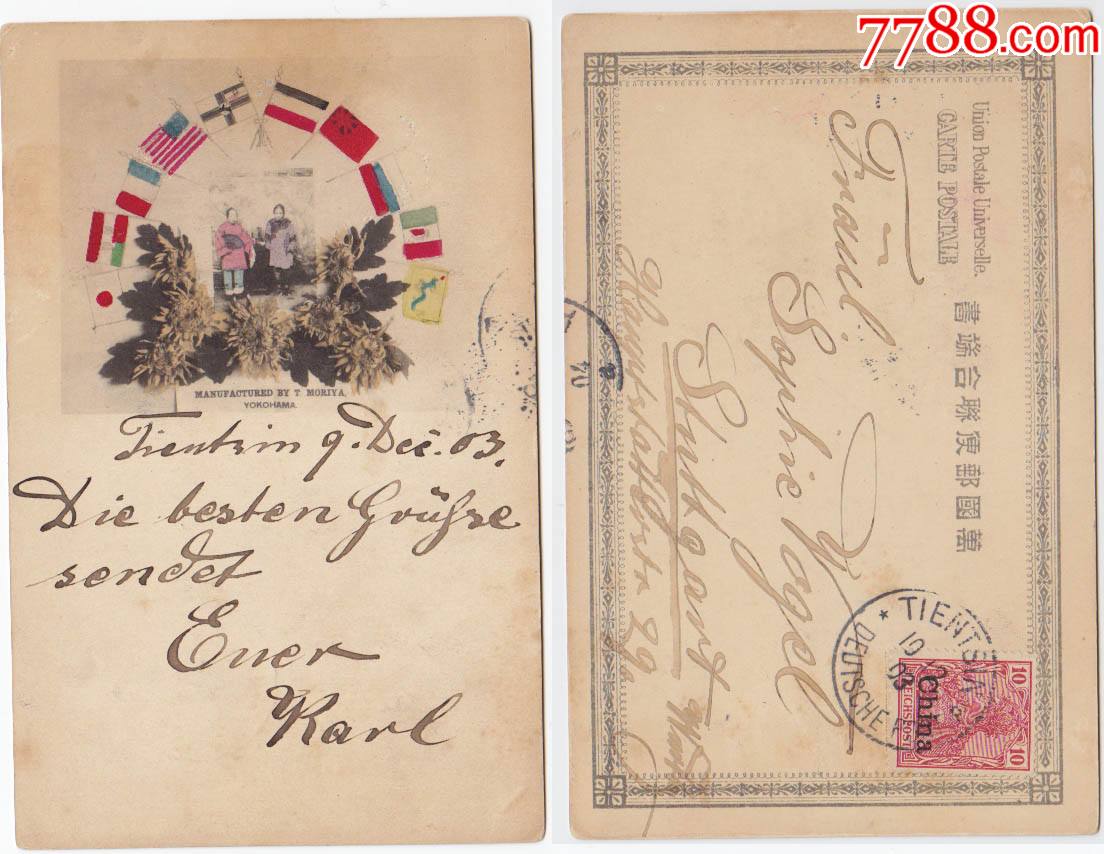 7788.com
MANUFACTURED BY T. MORIYA,
YOKOHAMA.
Tientsin 9. Dec. 03.
Die besten Grüsse
sendet
Euer
Karl
Union Postale Universelle.
CARTE POSTALE
萬國郵便聯合端書
Fräul.
Sophie Vogel
Stuttgart
29
TIENTSIN
10
03
DEUTSCHE
China
10
10
REICHSPOST